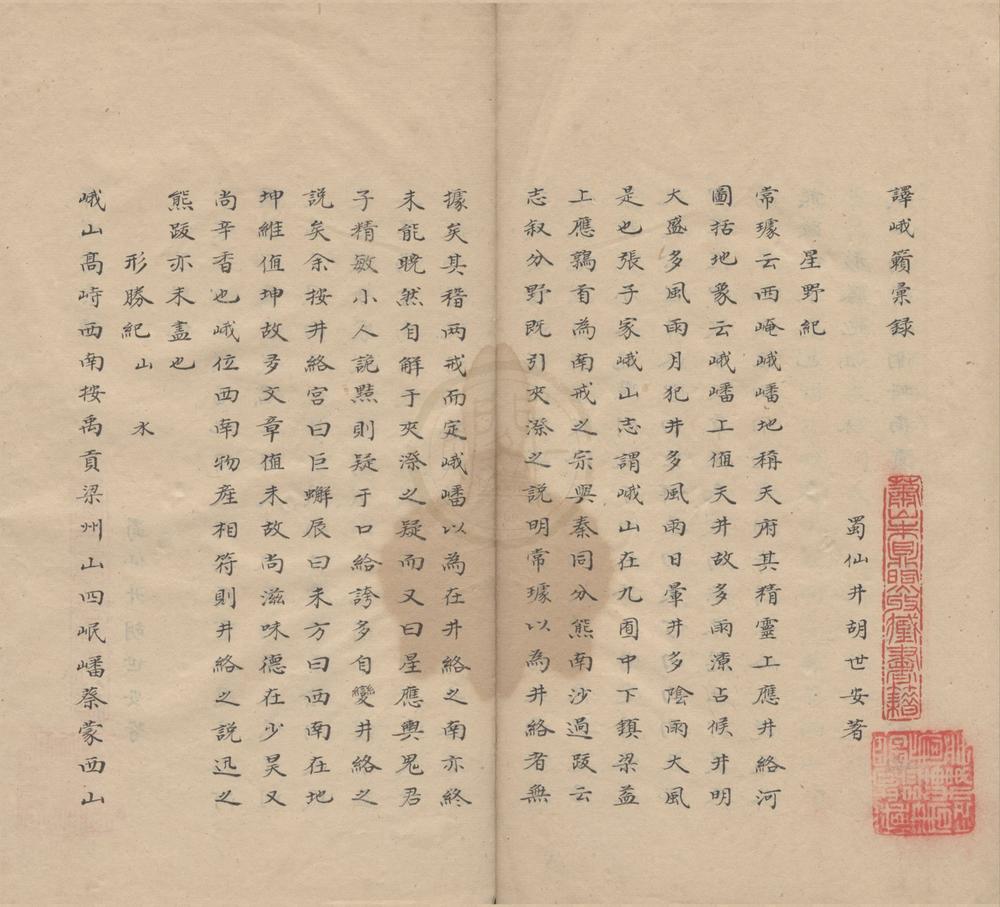 譯峨籟彙錄
蜀仙井胡世安著
星野紀
常璩云西崦峨嶓地稱天府其精靈上應井絡河
圖括地象云峨嶓上值天井故多雨潦占候井明
大盛多風雨月犯井多風雨日暈井多陰雨大風
是也張子家峨山志謂峨山在九囿中下鎮梁益
上應鶉首為南戒之宗與秦同分熊南沙過跋云
志叙分野既引夾漈之說明常璩以為井絡者無
據矣其稽兩戒而定峨嶓以為在井絡之南亦終
未能晩然自解于夾漈之疑而又曰星應輿鬼君
子精敏小人詭黠則疑于口給誇多自變井絡之
說矣余按井絡宮曰巨蠏辰曰未方曰西南在地
坤維值坤故多文章值未故尚滋味德在少昊又
尚辛香也峨位西南物產相符則井絡之說迅之
熊跋亦未盡也
形勝紀 山 水
峨山髙峙西南按禹貢梁州山四岷嶓蔡蒙西山